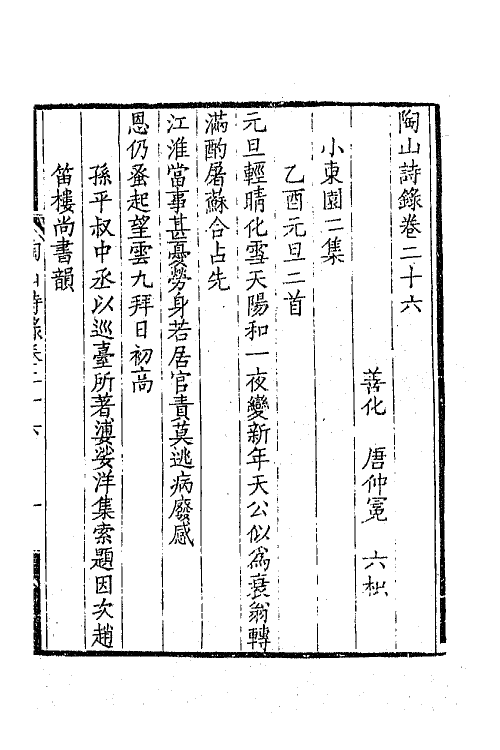 陶山詩錄卷二十六
善化　唐仲冕　六枳
小東園二集
乙酉元旦二首
元旦輕晴化雪天陽和一夜變新年天公似爲衰翁轉
滿酌屠蘇合占先
江淮當事甚憂勞身若居官責莫逃病廢感
恩仍蚤起望雲九拜日初高
孫平叔中丞以巡臺所著婆娑洋集索題因次趙
笛樓尚書韻
陶山詩錄卷二十六　一